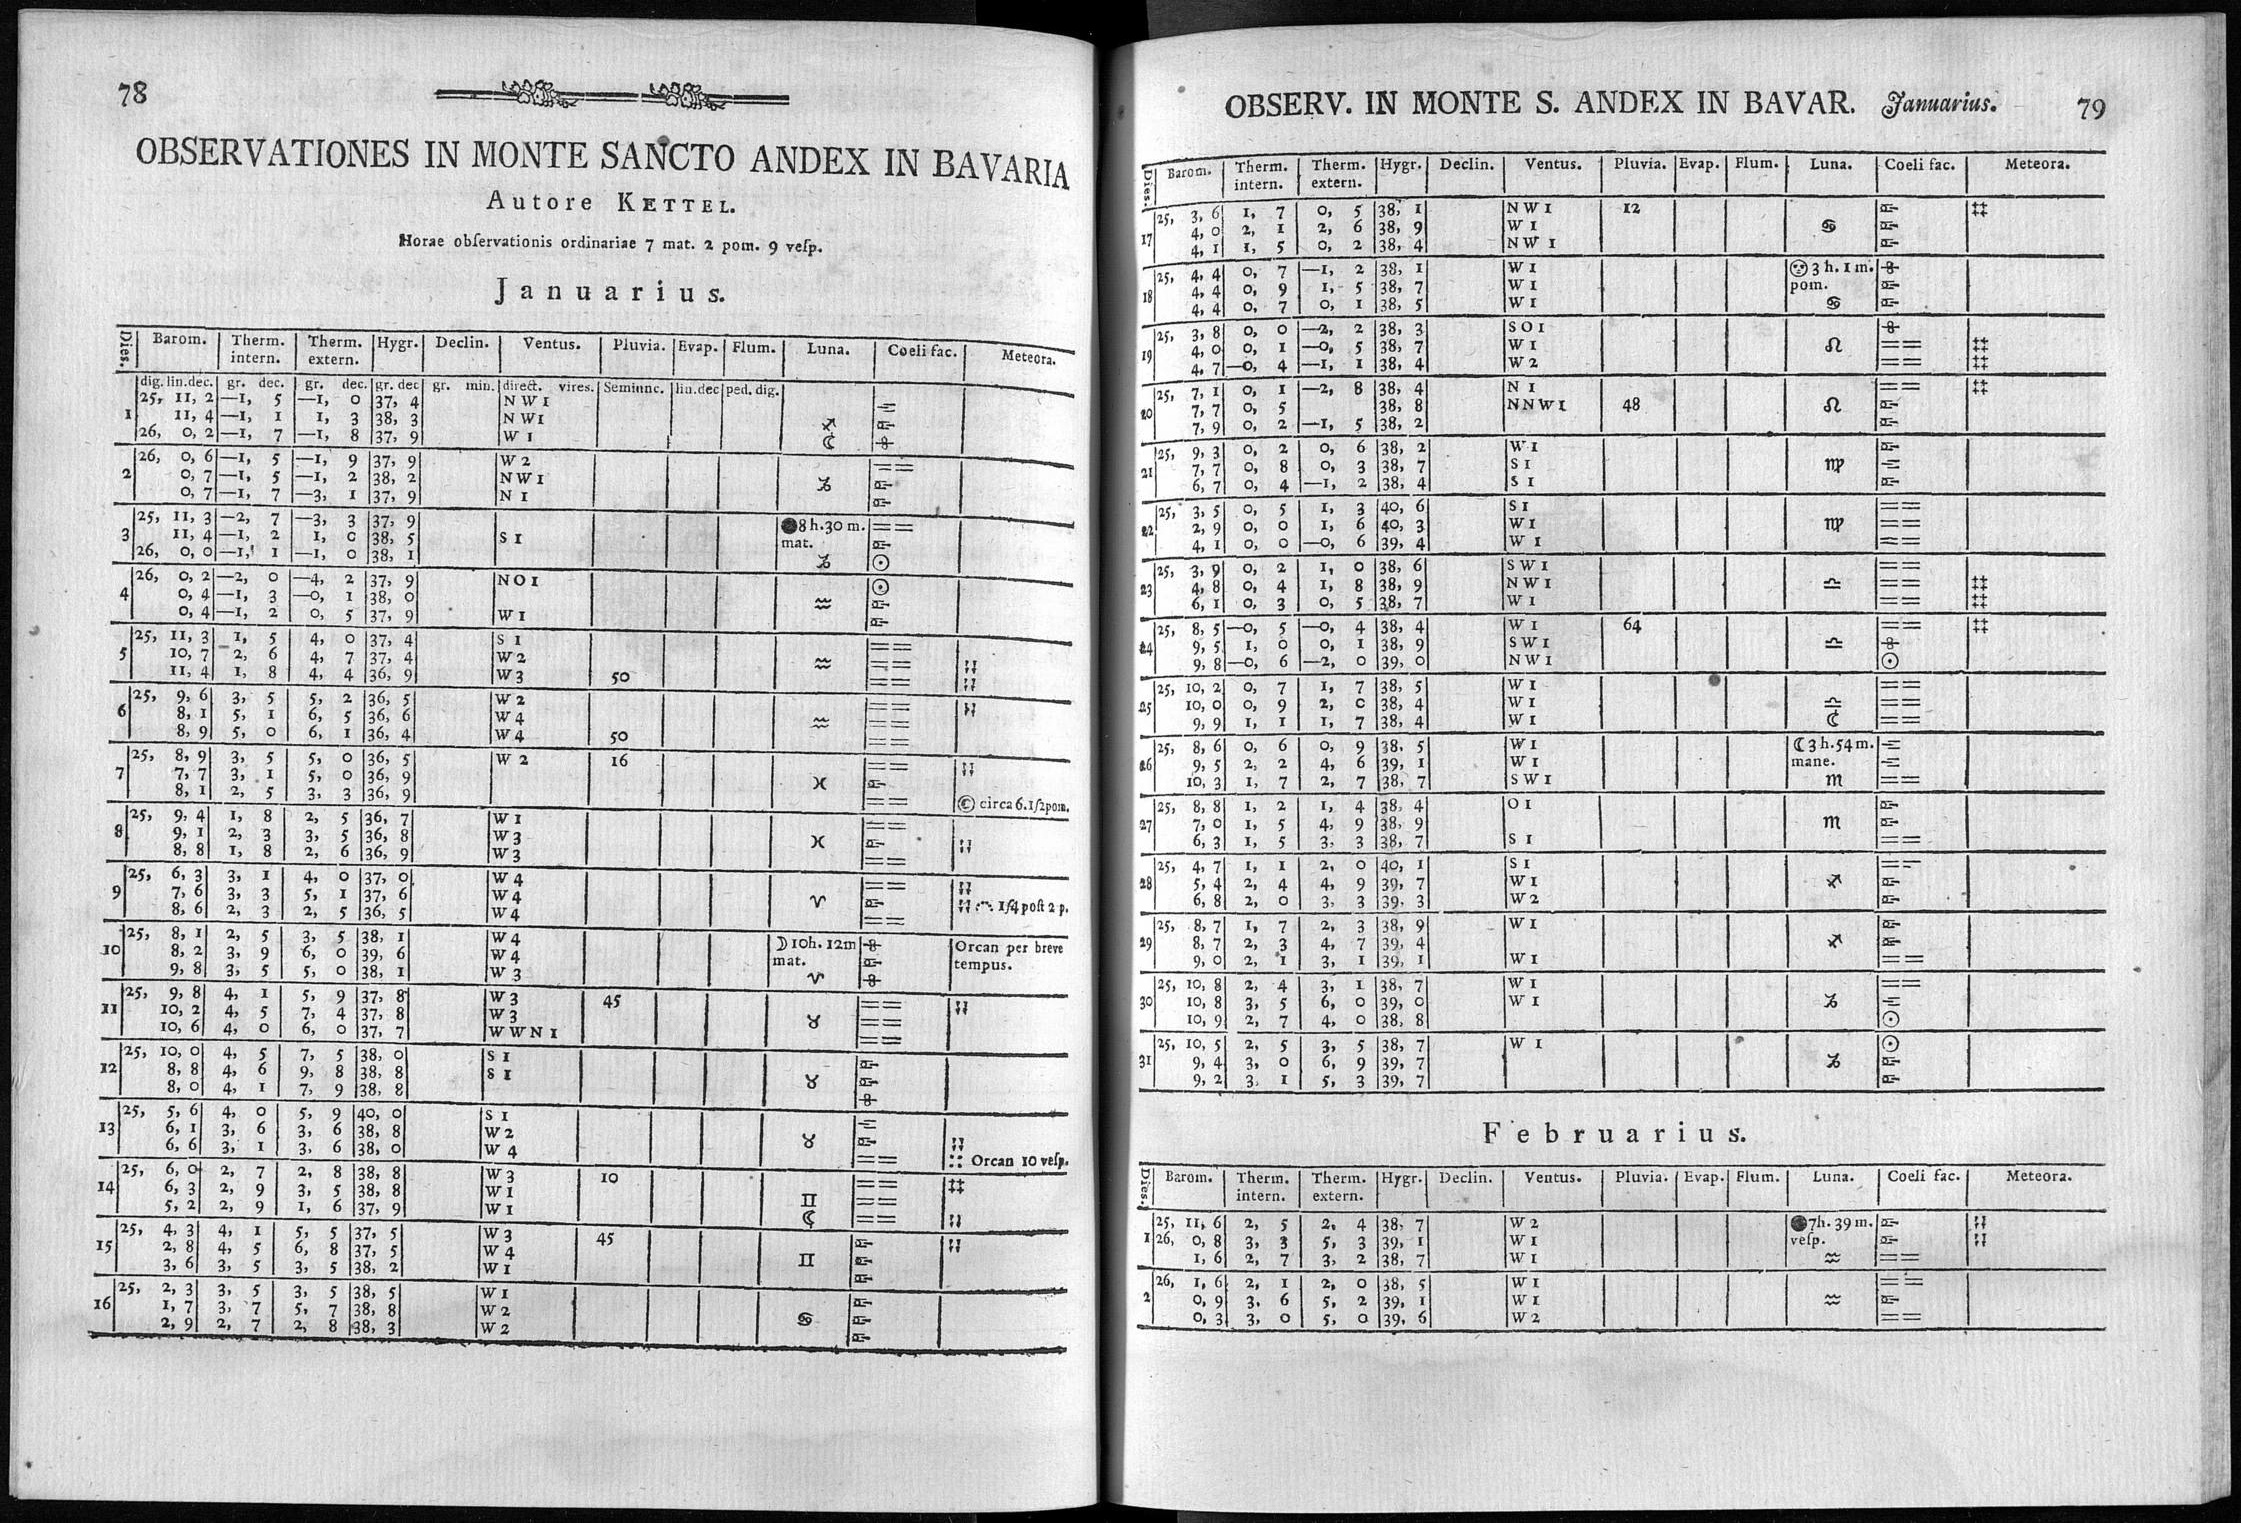 78
OBSERVATIONES IN MONTE SANCTO ANDEX IN BAVARIA
Autore KETTEL.
Horae obſervationis ordinariae 7 mat. 2 pom. 9 veſp.
Januarius.
Dies. Barom. Therm. intern. Therm. extern. Hygr. Declin. Ventus. Pluvia. Evap. Flum. Luna. Coeli fac. Meteora.
dig. lin. dec. gr. dec. gr. dec. gr. dec gr. min. direct. vires. Semiunc. lin. dec ped. dig.
1 25, 11, 2 —1, 5 —1, 0 37, 4 NW1
11, 4 —1, 1 1, 3 38, 3 NW1 ♐
26, 0, 2 —1, 7 —1, 8 37, 9 W1 ☾
2 26, 0, 6 —1, 5 —1, 9 37, 9 W2 ==
0, 7 —1, 5 —1, 2 38, 2 NW1 ♑
0, 7 —1, 7 —3, 1 37, 9 N1
3 25, 11, 3 —2, 7 —3, 3 37, 9 ●8h.30m. ==
11, 4 —1, 2 1, 0 38, 5 S1 mat.
26, 0, 0 —1, 1 —1, 0 38, 1 ♑ ☉
4 26, 0, 2 —2, 0 —4, 2 37, 9 NO1 ☉
0, 4 —1, 3 —0, 1 38, 0 ♒
0, 4 —1, 2 0, 5 37, 9 W1
5 25, 11, 3 1, 5 4, 0 37, 4 S1 ==
10, 7 2, 6 4, 7 37, 4 W2 ♒ ==
11, 4 1, 8 4, 4 36, 9 W3 50 ==
6 25, 9, 6 3, 5 5, 2 36, 5 W2 ==
8, 1 5, 1 6, 5 36, 6 W4 ♒ ==
8, 9 5, 0 6, 1 36, 4 W4 50 ==
7 25, 8, 9 3, 5 5, 0 36, 5 W2 16 ==
7, 7 3, 1 5, 0 36, 9 ♓
8, 1 2, 5 3, 3 36, 9 == © circa 6. 1/2 pom.
8 25, 9, 4 1, 8 2, 5 36, 7 W1 ==
9, 1 2, 3 3, 5 36, 8 W3 ♓
8, 8 1, 8 2, 6 36, 9 W3 ==
9 25, 6, 3 3, 1 4, 0 37, 0 W4 ==
7, 6 3, 3 5, 1 37, 6 W4 ♈
8, 6 2, 3 2, 5 36, 5 W4 == 1/4 poſt 2 p.
10 25, 8, 1 2, 5 3, 5 38, 1 W4 ☽10h. 12m Orcan per breve
8, 2 3, 9 6, 0 39, 6 W4 mat. tempus.
9, 8 3, 5 5, 0 38, 1 W3 ♈
11 25, 9, 8 4, 1 5, 9 37, 8 W3 45 ==
10, 2 4, 5 7, 4 37, 8 W3 ♉ ==
10, 6 4, 0 6, 0 37, 7 WWN1 ==
12 25, 10, 0 4, 5 7, 5 38, 0 S1
8, 8 4, 6 9, 8 38, 8 S1 ♉
8, 0 4, 1 7, 9 38, 8
13 25, 5, 6 4, 0 5, 9 40, 0 S1
6, 1 3, 6 3, 6 38, 8 W2 ♉
6, 6 3, 1 3, 6 38, 0 W4 == Orcan 10 veſp.
14 25, 6, 0 2, 7 2, 8 38, 8 W3 10 == ‡‡
6, 3 2, 9 3, 5 38, 8 W1 ♊ ==
5, 2 2, 9 1, 6 37, 9 W1 ☾ ==
15 25, 4, 3 4, 1 5, 5 37, 5 W3 45
2, 8 4, 5 6, 8 37, 5 W4 ♊
3, 6 3, 5 3, 5 38, 2 W1
16 25, 2, 3 3, 5 3, 5 38, 5 W1
1, 7 3, 7 5, 7 38, 8 W2 ♋
2, 9 2, 7 2, 8 38, 3 W2
OBSERV. IN MONTE S. ANDEX IN BAVAR. Januarius. 79
Dies. Barom. Therm. intern. Therm. extern. Hygr. Declin. Ventus. Pluvia. Evap. Flum. Luna. Coeli fac. Meteora.
17 25, 3, 6 1, 7 0, 5 38, 1 NW1 12 ‡‡
4, 0 2, 1 2, 6 38, 9 W1 ♋
4, 1 1, 5 0, 2 38, 4 NW1
18 25, 4, 4 0, 7 —1, 2 38, 1 W1 3h. 1m.
4, 4 0, 9 1, 5 38, 7 W1 pom.
4, 4 0, 7 0, 1 38, 5 W1 ♋
19 25, 3, 8 0, 0 —2, 2 38, 3 SO1
4, 0 0, 1 —0, 5 38, 7 W1 ♌ == ‡‡
4, 7 —0, 4 —1, 1 38, 4 W2 == ‡‡
20 25, 7, 1 0, 1 —2, 8 38, 4 N1 == ‡‡
7, 7 0, 5 38, 8 NNW1 48 ♌
7, 9 0, 2 —1, 5 38, 2
21 25, 9, 3 0, 2 0, 6 38, 2 W1
7, 7 0, 8 0, 3 38, 7 S1 ♍
6, 7 0, 4 —1, 2 38, 4 S1
22 25, 3, 5 0, 5 1, 3 40, 6 S1 ==
2, 9 0, 0 1, 6 40, 3 W1 ♍ ==
4, 1 0, 0 —0, 6 39, 4 W1 ==
23 25, 3, 9 0, 2 1, 0 38, 6 SW1 ==
4, 8 0, 4 1, 8 38, 9 NW1 ♎ == ‡‡
6, 1 0, 3 0, 5 38, 7 W1 == ‡‡
24 25, 8, 5 —0, 5 —0, 4 38, 4 W1 64 == ‡‡
9, 5 1, 0 0, 1 38, 9 SW1 ♎
9, 8 —0, 6 —2, 0 39, 0 NW1 ☉
25 25, 10, 2 0, 7 1, 7 38, 5 W1 ==
10, 0 0, 9 2, 0 38, 4 W1 ♎ ==
9, 9 1, 1 1, 7 38, 4 W1 ☾ ==
26 25, 8, 6 0, 6 0, 9 38. 5 W1 ☾3h.54m.
9, 5 2, 2 4, 6 39, 1 W1 mane.
10, 3 1, 7 2, 7 38, 7 SW1 ♏ ==
27 25, 8, 8 1, 2 1, 4 38, 4 O1
7, 0 1, 5 4, 9 38, 9 ♏
6, 3 1, 5 3, 3 38, 7 S1 ==
28 25, 4, 7 1, 1 2, 0 40, 1 S1 ==
5, 4 2, 4 4, 9 39, 7 W1 ♐
6, 8 2, 0 3, 3 39, 3 W2
29 25, 8, 7 1, 7 2, 3 38, 9 W1
8, 7 2, 3 4, 7 39, 4 ♐
9, 0 2, 1 3, 1 39, 1 W1 ==
30 25, 10, 8 2, 4 3, 1 38, 7 W1 ==
10, 8 3, 5 6, 0 39, 0 W1 ♑
10, 9 2, 7 4, 0 38, 8 ☉
31 25, 10, 5 2, 5 3, 5 38, 7 W1 ☉
9, 4 3, 0 6, 9 39, 7 ♑
9, 2 3. 1 5, 3 39, 7
Februarius.
Dies. Barom. Therm. intern. Therm. extern. Hygr. Declin. Ventus. Pluvia. Evap. Flum. Luna. Coeli fac. Meteora.
1 25, 11, 6 2, 5 2, 4 38, 7 W2 ●7h. 39m.
26, 0, 8 3, 3 5, 3 39, 1 W1 veſp.
1, 6 2, 7 3, 2 38, 7 W1 ♒ ==
2 26, 1, 6 2, 1 2, 0 38, 5 W1 ==
0, 9 3, 6 5, 2 39, 1 W1 ♒
0, 3 3, 0 5, 0 39, 6 W2 ==